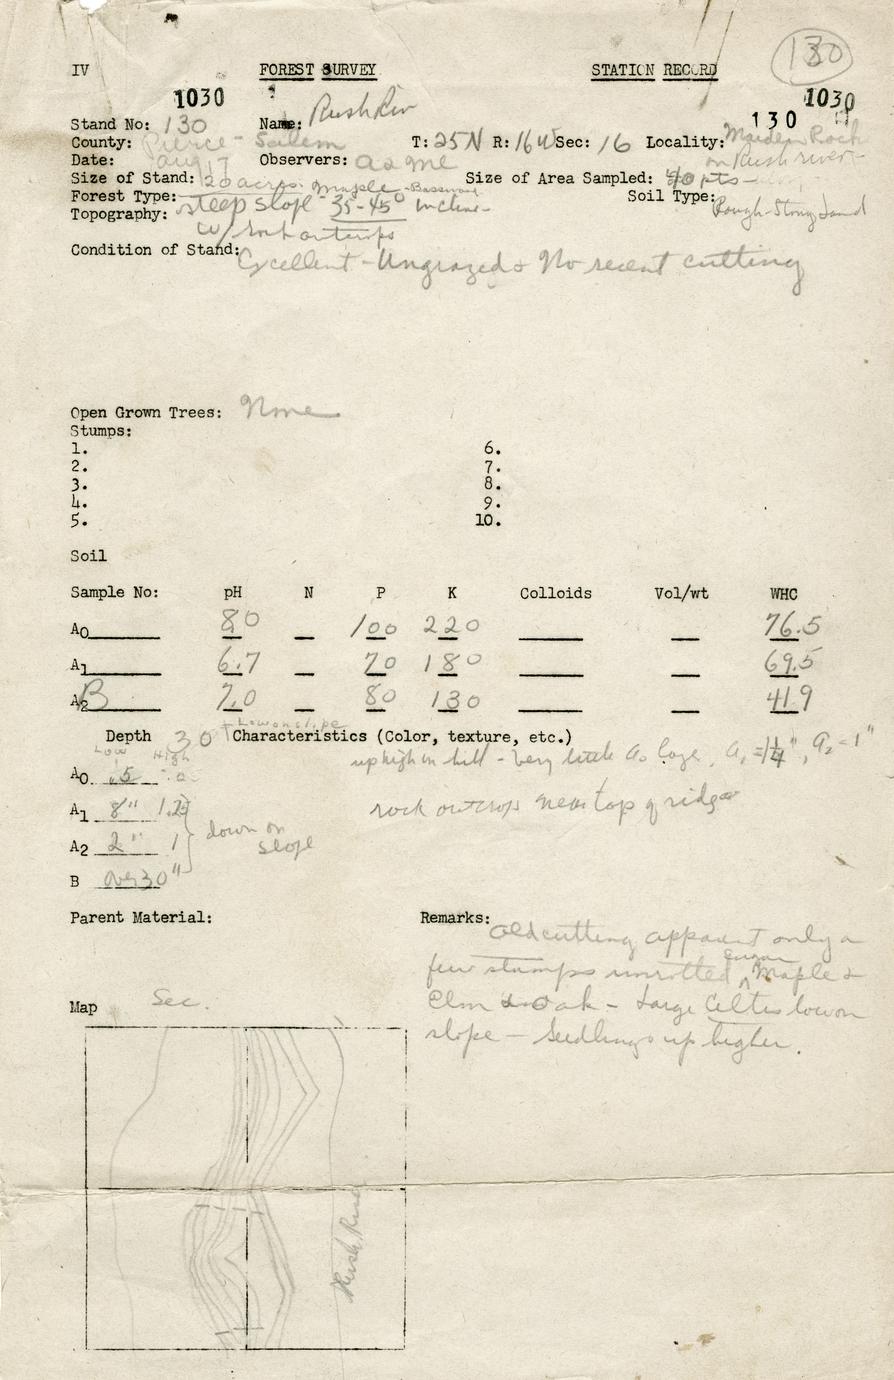 130
IV FOREST SURVEY STATION RECORD
1030 1030
Stand No: 130 Name: Rush Riv 130
County: Pierce - Salem T: 25N R: 16W Sec: 16 Locality: Maiden Rock
Date: Aug 17 Observers: on Rush river-
Size of Stand: 20 acres. Size of Area Sampled: 40 pts
Forest Type: Maple - Basswood Soil Type: Rough-Stony Land
Topography: steep slope 35-45° incline-
w/ rock outcrops
Condition of Stand: Excellent - Ungrazed & No recent cutting
Open Grown Trees: None
Stumps:
1. 6.
2. 7.
3. 8.
4. 9.
5. 10.
Soil
Sample No: pH N P K Colloids Vol/wt WHC
A0 8.0 100 220 76.5
A1 6.7 70 180 69.5
A2 B 7.0 80 130 41.9
Low on slope
Depth 30 Characteristics (Color, texture, etc.)
Low High up high on hill - Very little A0 layer, A1 = 1 1/4", A2 = 1"
A0 .5 .0
A1 8" 1.25 rock outcrops near top of ridge
A2 2" 1 down on slope
B over 30"
Parent Material: Remarks: Old cutting apparent only a
few stumps unrotted sugar Maple &
Elm & oak - Large Celtis low on
slope - Seedlings up higher.
Map Sec.
Rush River